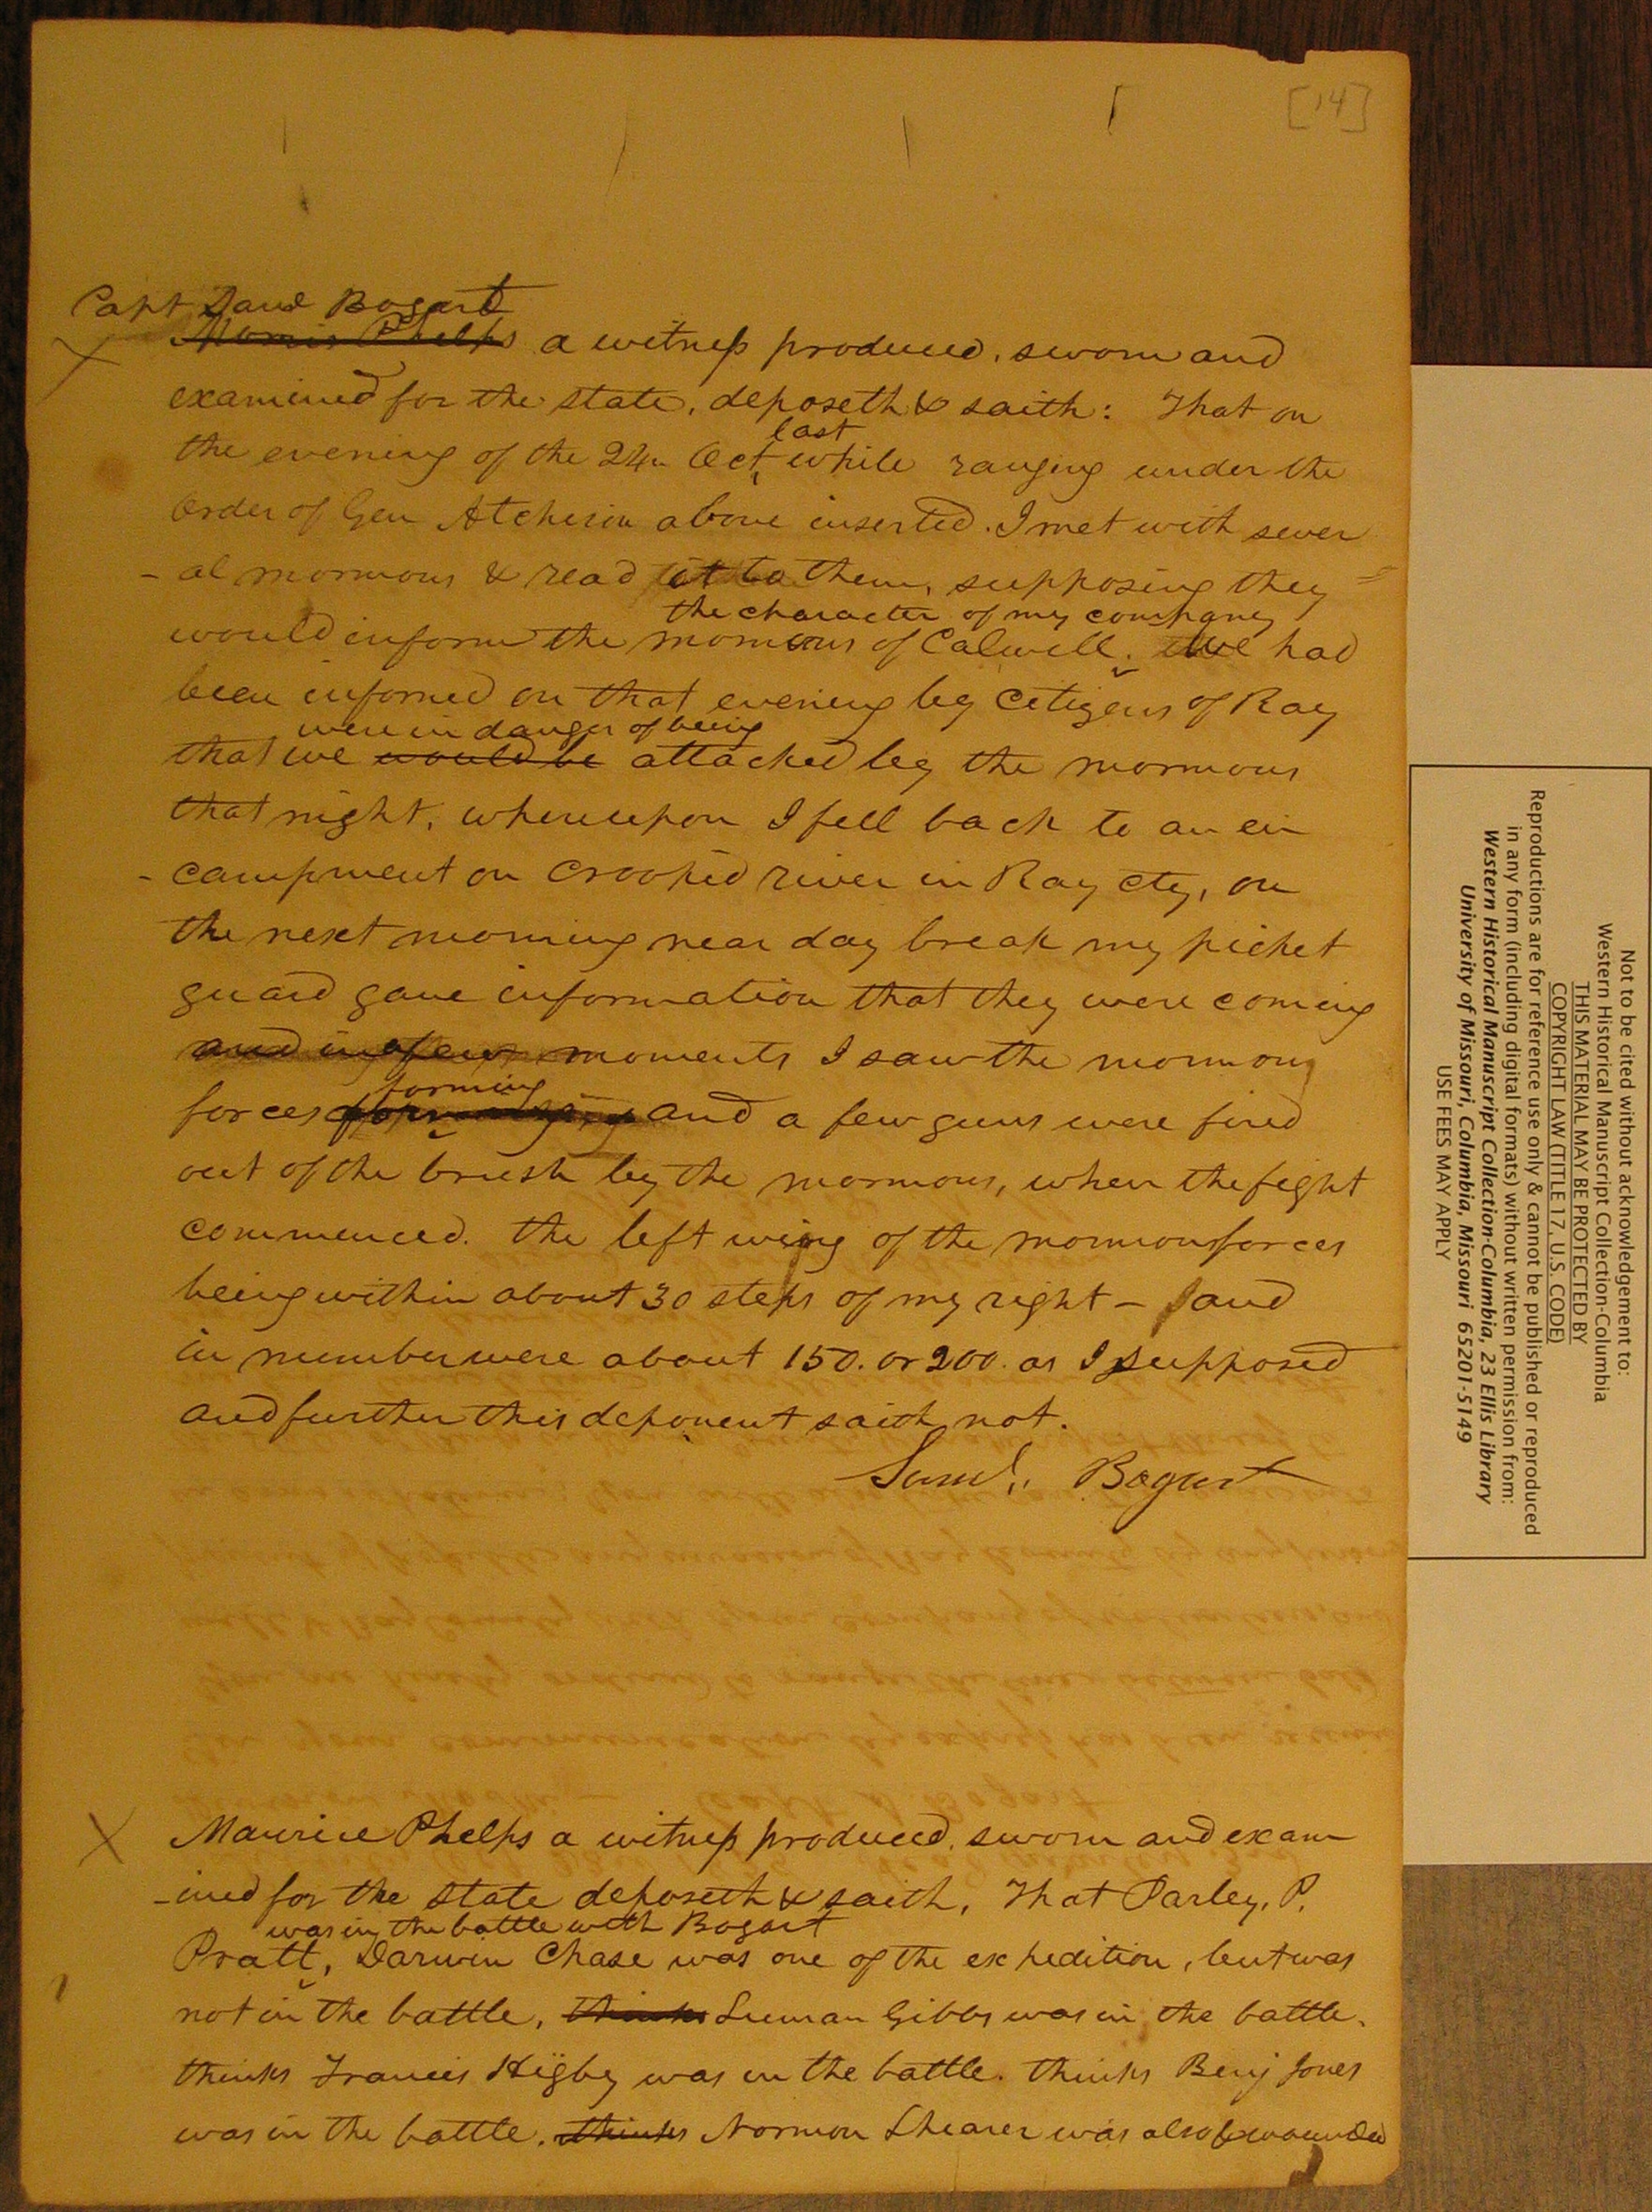 [14]
Capt Saml Bogart
Morris Phelps a witness produced, sworn and
examined for the state, deposeth & saith: That on
last
the evening of the 24th Oct, while ranging under the
Order of Gen Atcheson above inserted. I met with sever
- al mormons & read it to them, supposing they =
the character of my company
would inform the mormons of Calwell. We had
been informed on that evening by citizens of Ray
were in danger of being
that we would be attacked by the mormons
that night, whereupon I fell back to an en
- campment on Crooked river in Ray cty, on
the next morning near day break my picket
guard gave information that they were coming
and in a few moments I saw the mormon
forming
forces and a few guns were fired
out of the brush by the mormons, when the fight
commenced. the left wing of the mormon forces
being within about 30 steps of my right - and
in number were about 150. or 200. as I supposed
and further this deponent saith not.
Saml. Bogart
X Maurice Phelps a witness produced, sworn and exam
- ined for the state deposeth & saith, That Parley. P.
was in the battle with Bogart
Pratt, Darwin Chase was one of the expedition, but was
not in the battle, thinks Luman Gibbs was in the battle.
thinks Francis Higby was in the battle. thinks Benj Jones
was in the battle. thinks Norman Shearer was also wounded
Not to be cited without acknowledgement to:
Western Historical Manuscript Collection-Columbia
THIS MATERIAL MAY BE PROTECTED BY
COPYRIGHT LAW (TITLE 17, U.S. CODE)
Reproductions are for reference use only & cannot be published or reproduced
in any form (including digital formats) without written permission from:
Western Historical Manuscript Collection-Columbia, 23 Ellis Library
University of Missouri, Columbia, Missouri 65201-5149
USE FEES MAY APPLY